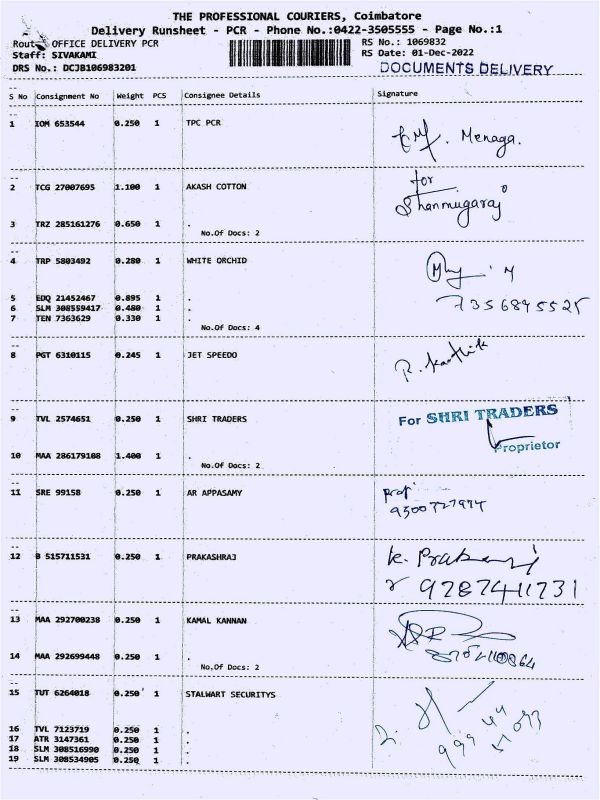 THE PROFESSIONAL COURIERS, Coimbatore
Delivery Runsheet - PCR - Phone No.:0422-3505555 - Page No.:1
Route OFFICE DELIVERY PCR
RS No.: 1069832
Staff: SIVAKAMI
RS Date: 01-Dec-2022
DRS No.: DCJB106983201
DOCUMENTS DELIVERY
S No Consignment No Weight PCS Consignee Details Signature
1 IOM 653544 0.250 1 TPC PCR
Menaga.
2 TCG 27007695 1.100 1 AKASH COTTON
for
Shanmugaraj
3 TRZ 285161276 0.650 1 .
No.Of Docs: 2
4 TRP 5803492 0.280 1 WHITE ORCHID
5 EDQ 21452467 0.895 1 .
7356895525
6 SLM 308559417 0.480 1 .
7 TEN 7363629 0.330 1 .
No.Of Docs: 4
8 PGT 6310115 0.245 1 JET SPEEDO
R. Karthik
9 TVL 2574651 0.250 1 SHRI TRADERS
For SHRI TRADERS
Proprietor
10 MAA 286179108 1.400 1 .
No.Of Docs: 2
11 SRE 99158 0.250 1 AR APPASAMY
9500727974
12 B 515711531 0.250 1 PRAKASHRAJ
K. Prakasraj
9287411731
13 MAA 292700238 0.250 1 KAMAL KANNAN
14 MAA 292699448 0.250 1 .
No.Of Docs: 2
15 TUT 6264018 0.250 1 STALWART SECURITYS
16 TVL 7123719 0.250 1 .
17 ATR 3147361 0.250 1 .
18 SLM 308516990 0.250 1 .
19 SLM 308534905 0.250 1 .